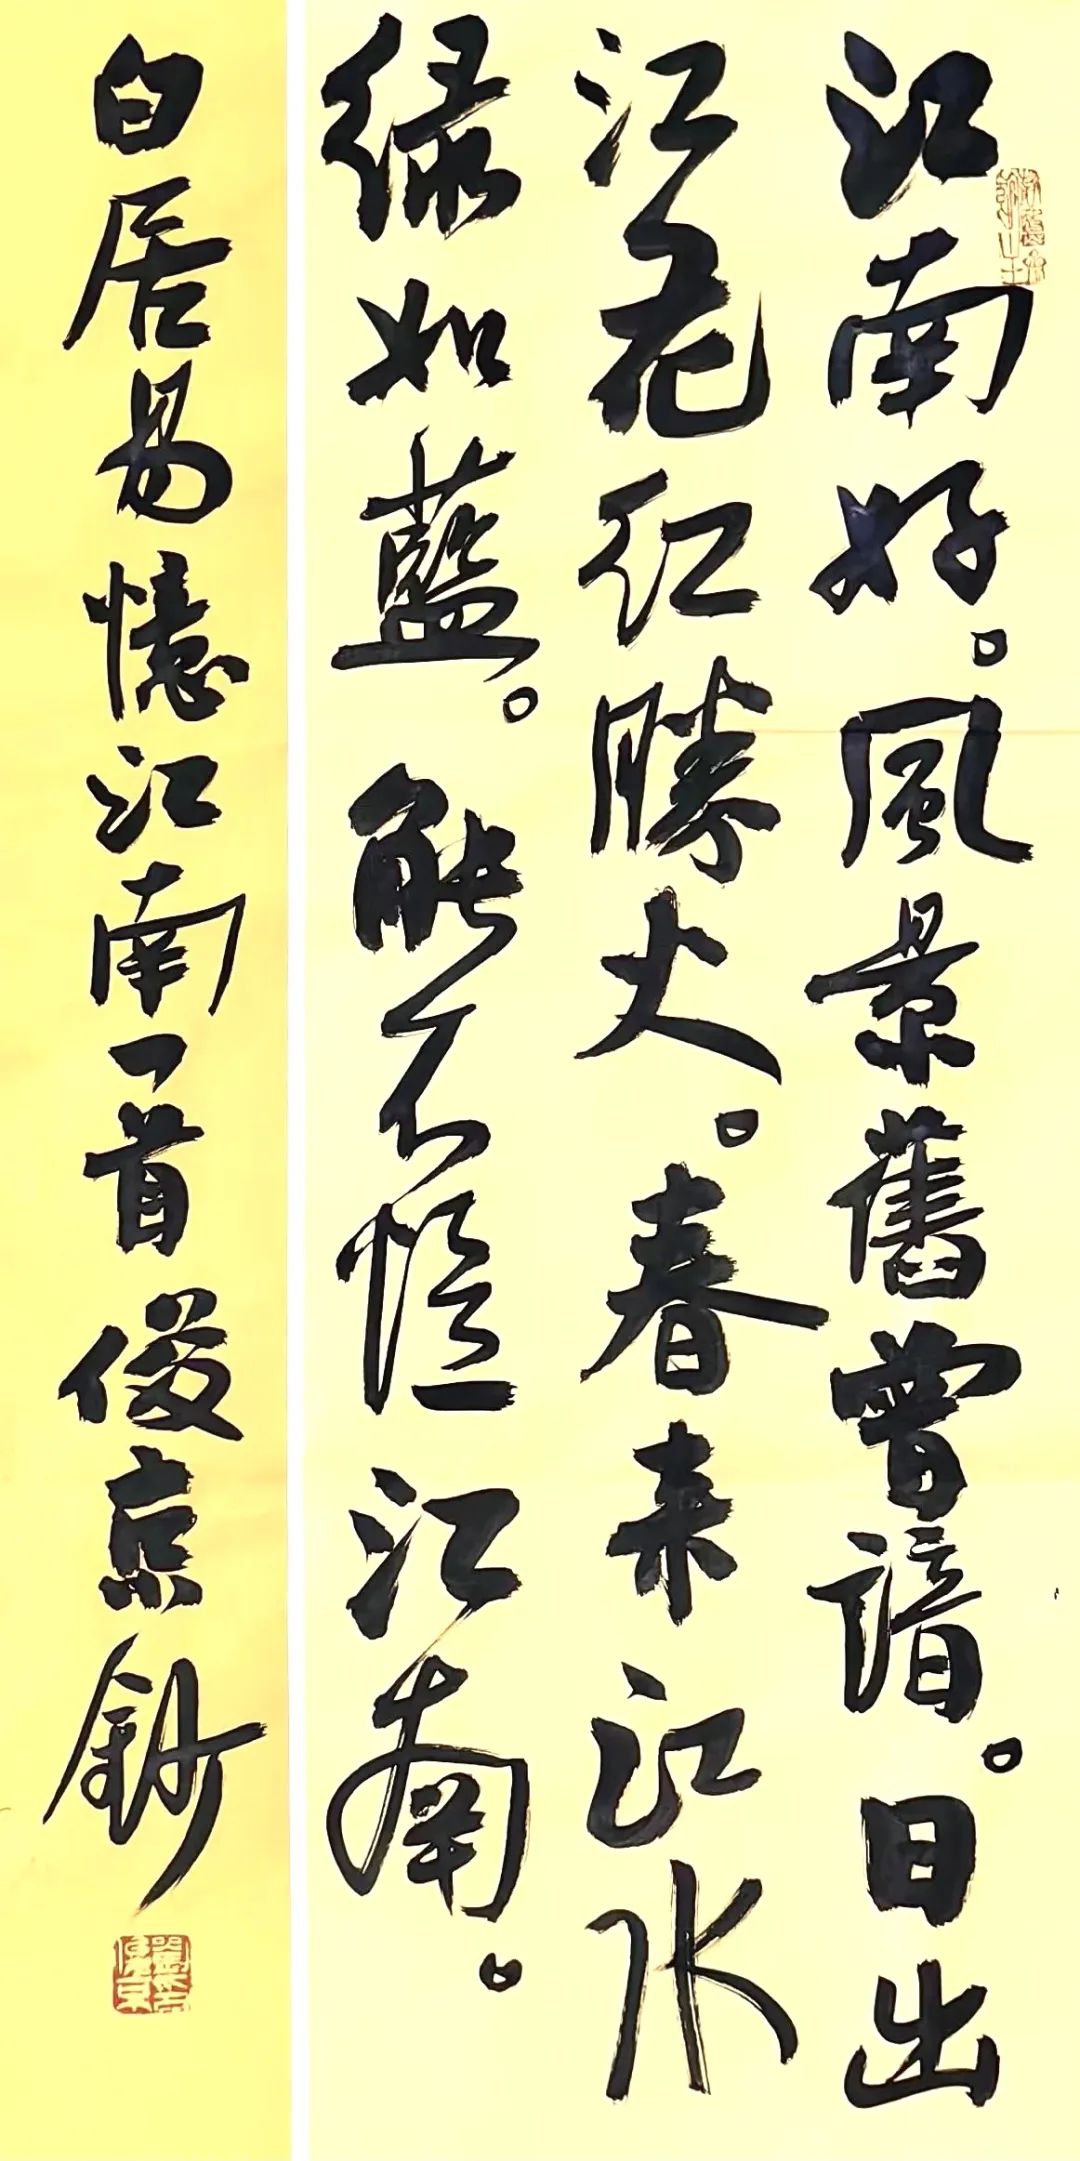 江南好。風景舊曾諳。日出
江花红勝火。春来江水
绿如藍。能不憶江南。
白居易憶江南一首俊京鈔